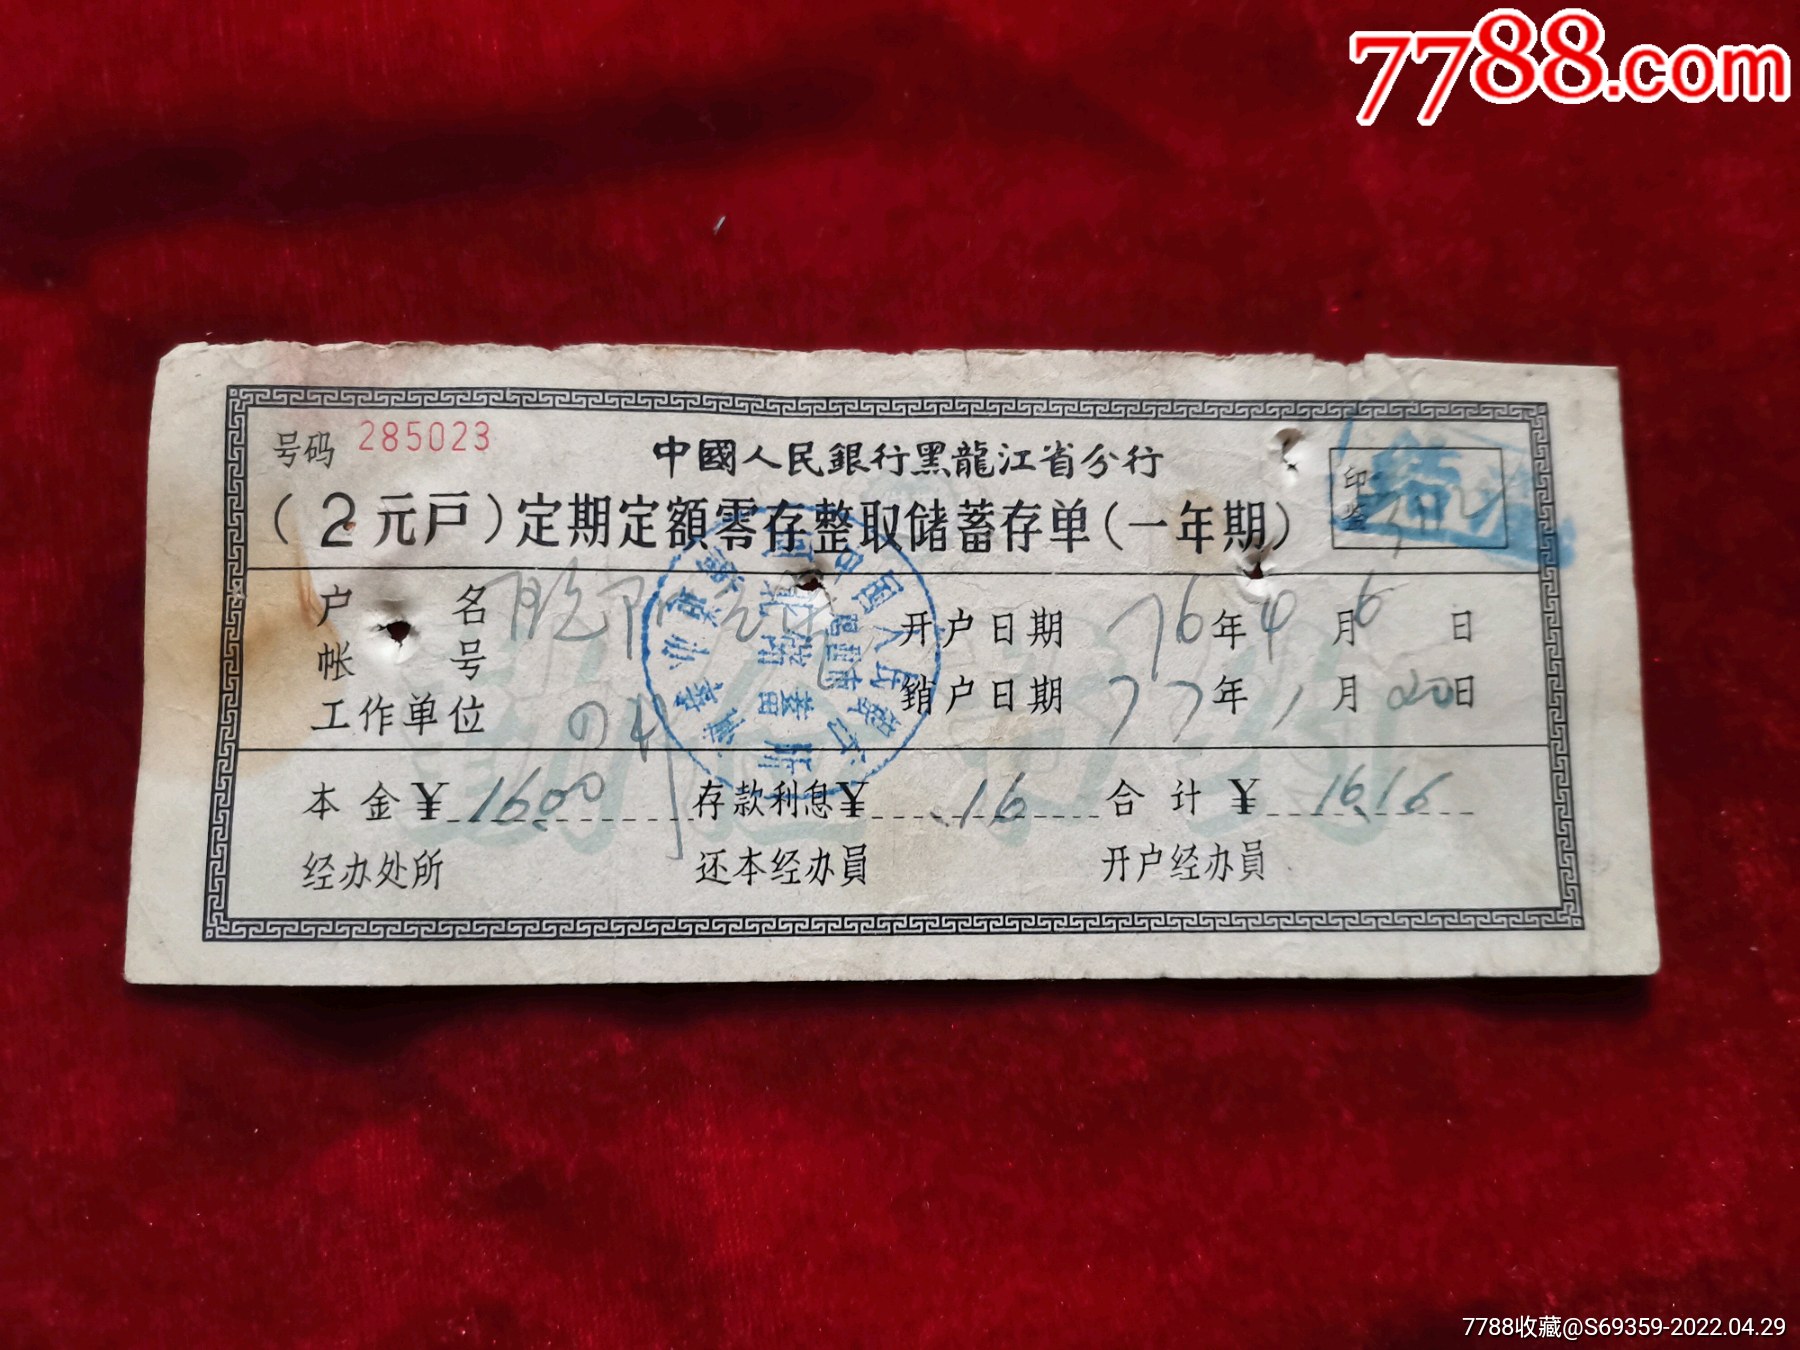 7788.com
号码 285023
中國人民銀行黑龍江省分行
(2元戸)定期定額零存整取储蓄存单(一年期)
印鉴
户名
帐号
工作单位
开户日期 76年4月6日
銷户日期 77年1月20日
本金¥1600 存款利息¥.16 合计¥1616
经办处所 还本经办員 开户经办員
7788收藏@S69359-2022.04.29